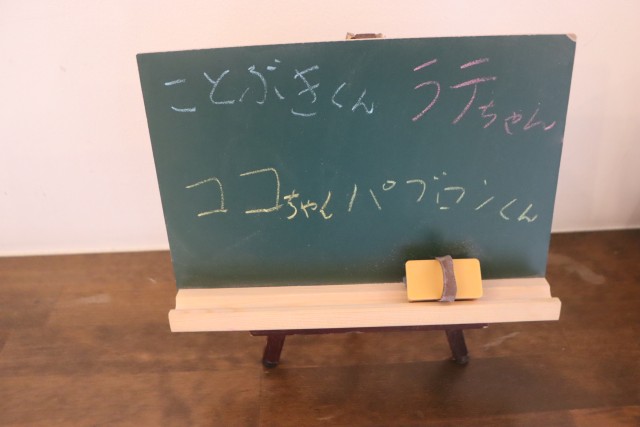 ことぶきくん ラテちゃん
ココちゃん パブロンくん